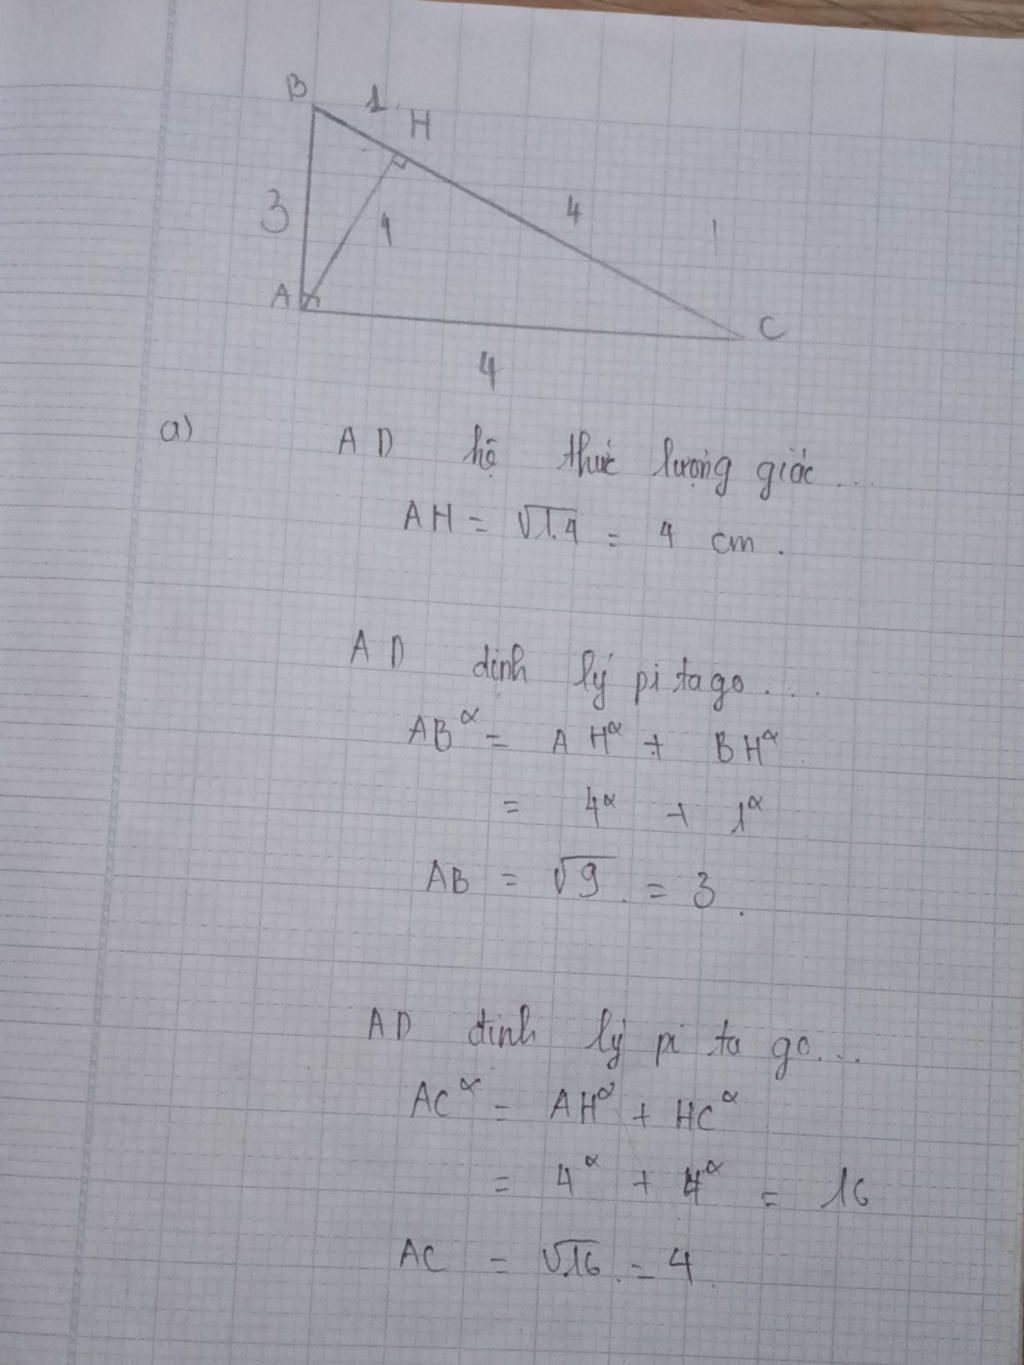 B 1 H
3 4 4
A C
4
a) AD hệ thức lượng giác ...
AH = √1.4 = 4 cm .
AD định lý pi tago ....
AB² = AH² + BH²
= 4² + 1²
AB = √9 . = 3 .
AD định lý pi ta go ...
AC² = AH² + HC²
= 4² + 4² = 16
AC = √16 . = 4 .